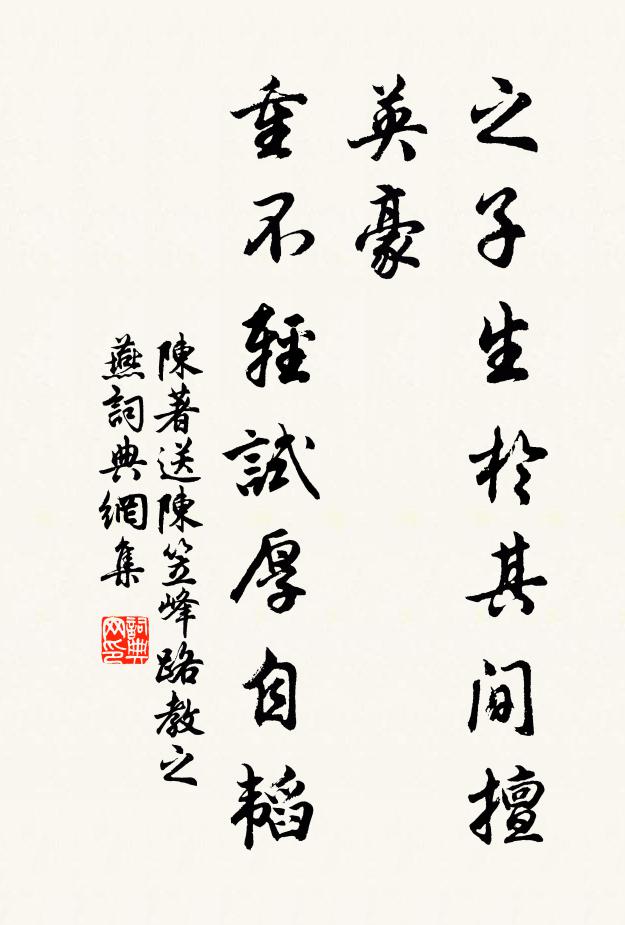 之子生於其間擅
英豪
重不輕試厚自韜
陳著送陳笠峰路教之
燕詞典網集
詞典
网印